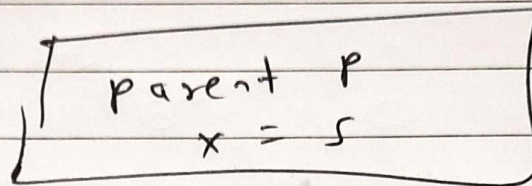 parent P
x = 5